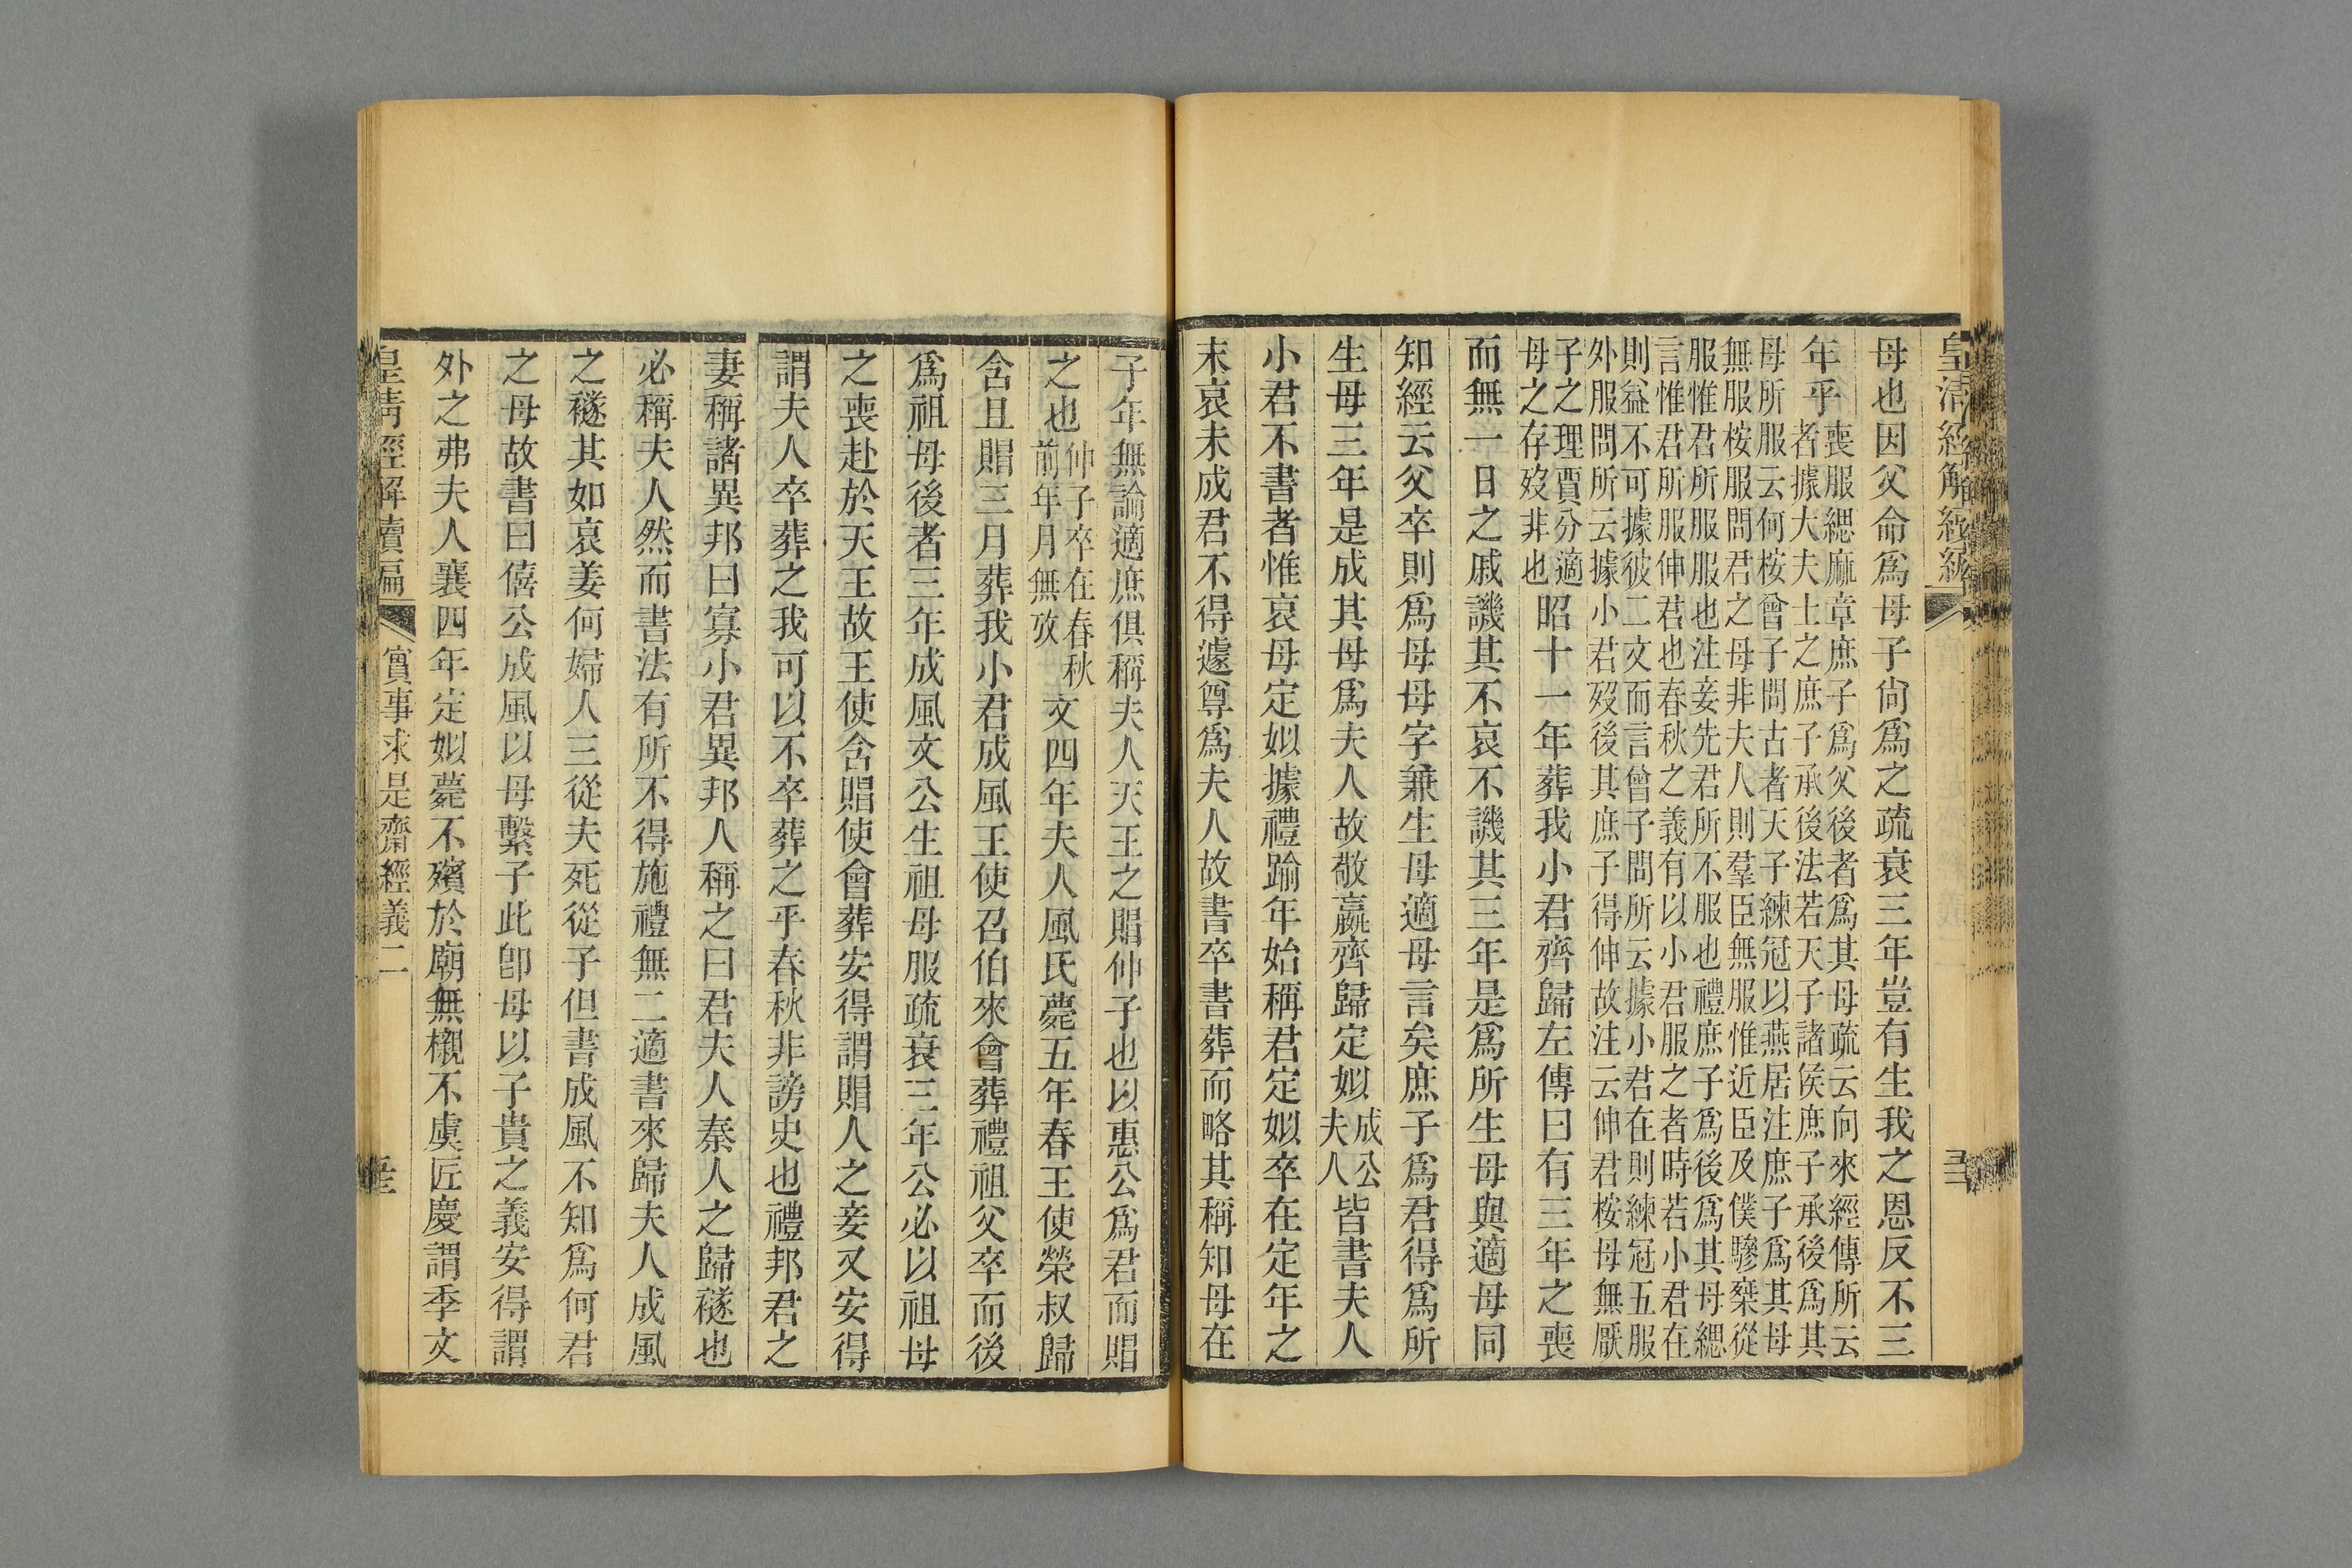 皇清經解續編
母也因父命爲母子尙爲之疏衰三年豈有生我之恩反不三
年乎喪服緦麻章庶子爲父後者爲其母疏云向來經傳所云
者據大夫士之庶子承後法若天子諸侯庶子承後爲其
母所服云何桉曾子問古者天子練冠以燕居注庶子爲其母
無服桉服問君之母非夫人則羣臣無服惟近臣及僕驂椉從
服惟君所服服也注妾先君所不服也禮庶子爲後爲其母緦
言惟君所服伸君也春秋之義有以小君服之者時若小君在
則益不可據彼二文而言曾子問所云據小君在則練冠五服
外服問所云據小君歿後其庶子得伸故注云伸君桉母無厭
子之理賈分適
母之存歿非也昭十一年葬我小君齊歸左傳曰有三年之喪
而無一日之戚譏其不哀不譏其三年是爲所生母與適母同
知經云父卒則爲母母字兼生母適母言矣庶子爲君得爲所
生母三年是成其母爲夫人故敬嬴齊歸定姒成公夫人皆書夫人
小君不書者惟哀母定姒據禮踰年始稱君定姒卒在定年之
末哀未成君不得遽尊爲夫人故書卒書葬而略其稱知母在
子年無論適庶俱稱夫人天王之賵仲子也以惠公爲君而賵
之也仲子卒在春秋前年月無攷文四年夫人風氏薨五年春王使榮叔歸
含且賵三月葬我小君成風王使召伯來會葬禮祖父卒而後
爲祖母後者三年成風文公生祖母服疏衰三年公必以祖母
之喪赴於天王故王使含賵使會葬安得謂賵人之妾又安得
謂夫人卒葬之我可以不卒葬之乎春秋非謗史也禮邦君之
妻稱諸異邦曰寡小君異邦人稱之曰君夫人秦人之歸襚也
必稱夫人然而書法有所不得施禮無二適書來歸夫人成風
之襚其如哀姜何婦人三從夫死從子但書成風不知爲何君
之母故書曰僖公成風以母繫子此卽母以子貴之義安得謂
外之弗夫人襄四年定姒薨不殯於廟無櫬不虞匠慶謂季文
皇清經解續編 實事求是齋經義二